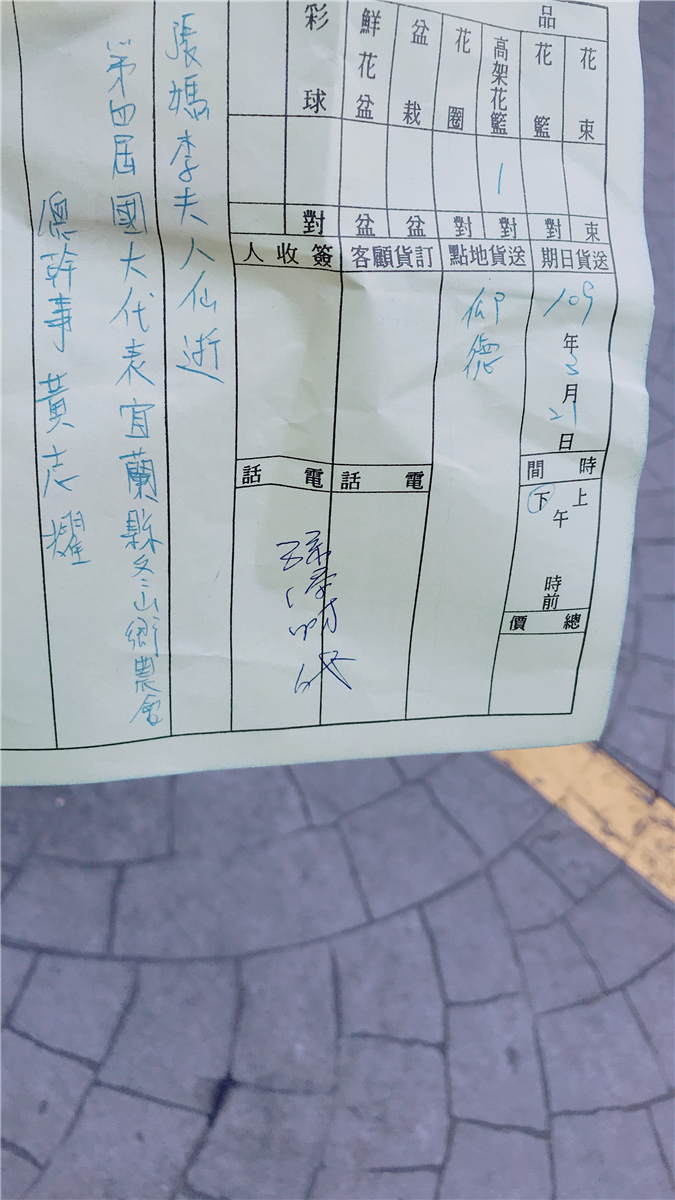 品
花束
花籃
高架花籃
花圈
盆栽
鮮花盆
彩球
1
束
對
對
對
盆
盆
對
送貨日期
送貨地點
訂貨顧客
簽收人
109年3月21日
仰德
時間
上下午
時前
總價
電話
電話
張媽李夫人仙逝
第四屆國大代表宜蘭縣冬山鄉農會
總幹事黃志耀